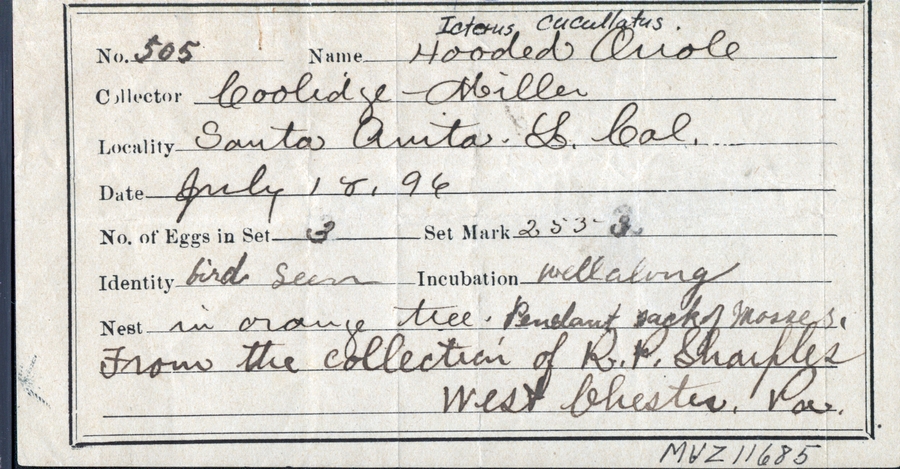 Icterus cucullatus.
No. 505 Name Hooded Oriole
Collector Coolidge - Miller
Locality Santa Anita. S. Cal.
Date July 18, 96
No. of Eggs in Set 3 Set Mark 253-3
Identity bird seen Incubation well along
Nest in orange tree. Pendant sack of Mosses.
From the collection of R. P. Sharples
West Chester, Pa.
MVZ 11685